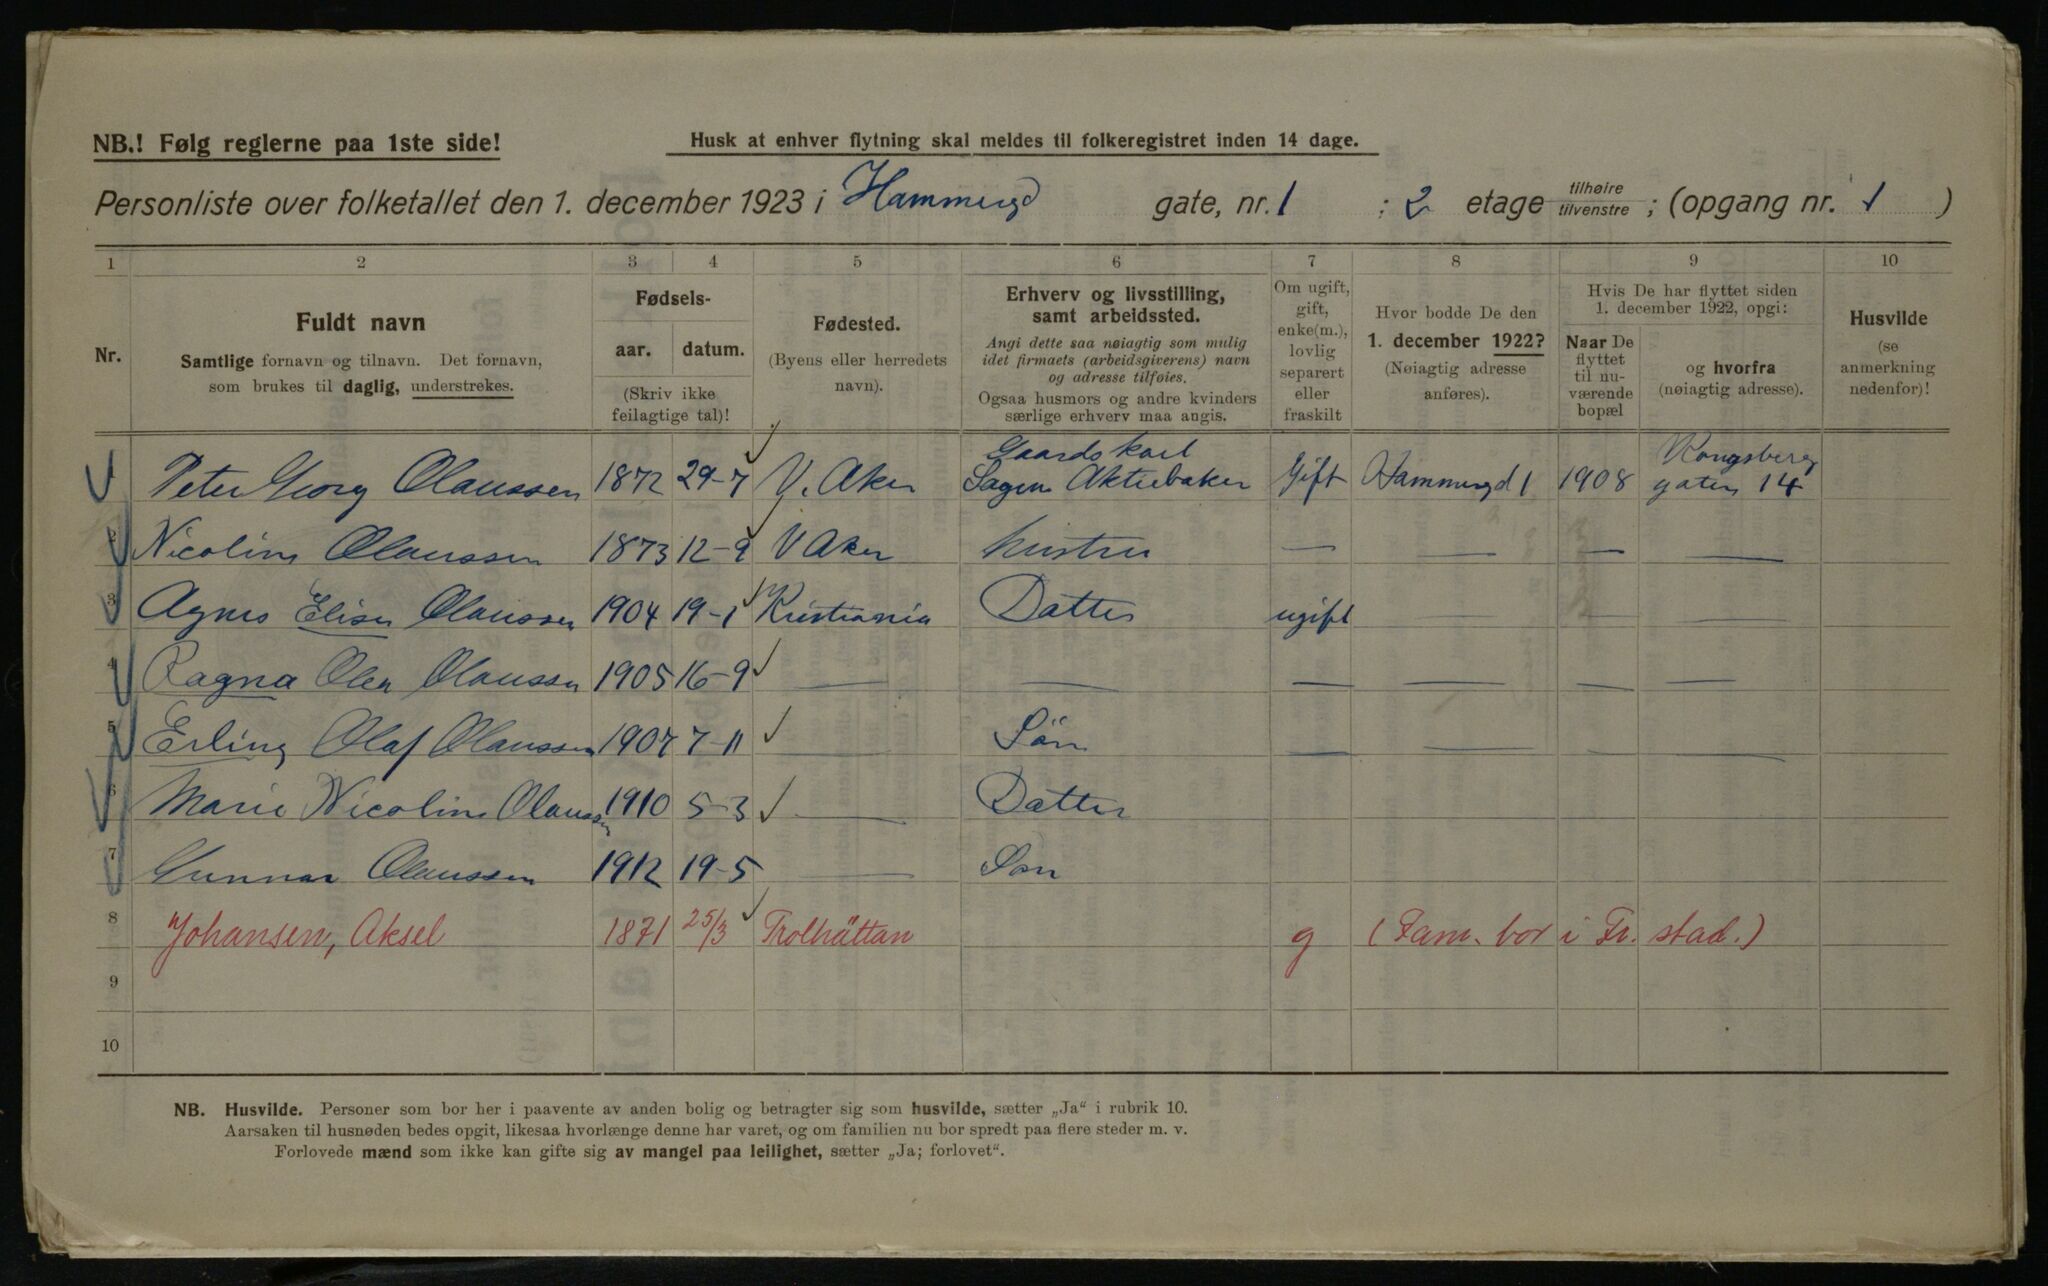 NB.! Følg reglerne paa 1ste side!
Husk at enhver flytning skal meldes til folkeregistret inden 14 dage.
Personliste over folketallet den 1. december 1923 i Hammergd gate, nr. 1 ; 2 etage tilhøire tilvenstre ; (opgang nr. 1 )
1 2 3 4 5 6 7 8 9 10
Nr.
Fuldt navn
Samtlige fornavn og tilnavn. Det fornavn,
som brukes til daglig, understrekes.
Fødsels-
aar. datum.
(Skriv ikke
feilagtige tal)!
Fødested.
(Byens eller herredets
navn).
Erhverv og livsstilling,
samt arbeidssted.
Angi dette saa nøiagtig som mulig
idet firmaets (arbeidsgiverens) navn
og adresse tilføies.
Ogsaa husmors og andre kvinders
særlige erhverv maa angis.
Om ugift,
gift,
enke(m.),
lovlig
separert
eller
fraskilt
Hvor bodde De den
1. december 1922?
(Nøiagtig adresse
anføres).
Hvis De har flyttet siden
1. december 1922, opgi:
Naar De
flyttet
til nu-
værende
bopæl
og hvorfra
(nøiagtig adresse).
Husvilde
(se
anmerkning
nedenfor)!
1 Peter Georg Olaussen 1872 29-7 V. Aker Gaardskarl Sagene Aktiebakeri Gift Hammergd 1 1908 Kongsberg gaten 14
2 Nicoline Olaussen 1873 12-9 V Aker Hustru — — — —
3 Agnes Elise Olaussen 1904 19-1 Kristiania Datter ugift — — —
4 Ragna Olea Olaussen 1905 16-9 — — — — — —
5 Erling Olaf Olaussen 1907 7-11 — Søn — — — —
6 Marie Nicoline Olaussen 1910 5-3 — Datter
7 Gunnar Olaussen 1912 19-5 — Søn
8 Johansen, Aksel 1871 25/3 Trolhättan g (Fam. bor i Fr. stad.)
9
10
NB. Husvilde. Personer som bor her i paavente av anden bolig og betragter sig som husvilde, sætter „Ja“ i rubrik 10.
Aarsaken til husnøden bedes opgit, likesaa hvorlænge denne har varet, og om familien nu bor spredt paa flere steder m. v.
Forlovede mænd som ikke kan gifte sig av mangel paa leilighet, sætter „Ja; forlovet“.